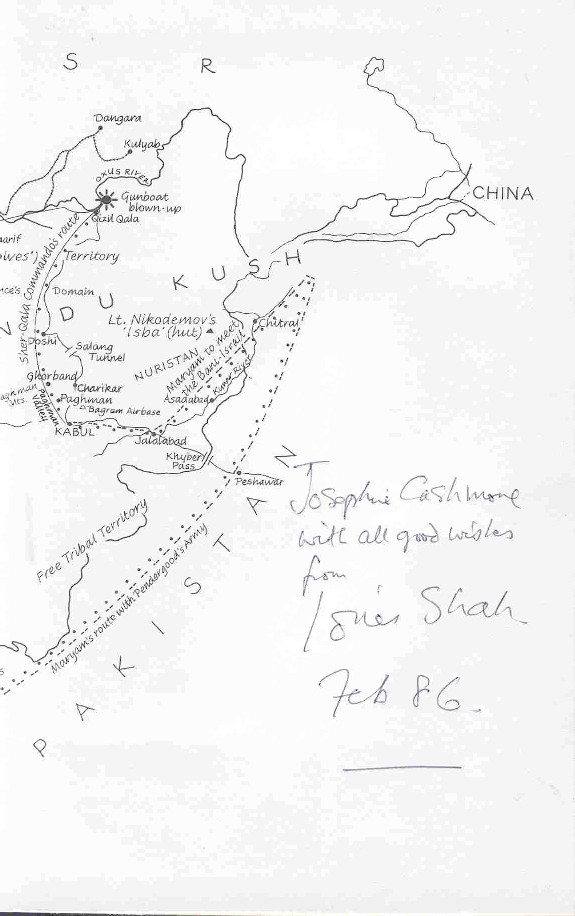 S R
Dangara
Kulyab
OXUS RIVER
Gunboat
blown-up
Qizil Qala
CHINA
Sher-Qala Commando's route
Territory
Domain
N D U K U S H
Lt. Nikodemov's
'Isba' (hut)
Chitral
Doshi
Salang
Tunnel
NURISTAN
Maryam to meet
the Bani-Israil
Kunar River
Ghorband
Charikar
Paghman
Paghman
Valley
Asadabad
Bagram Airbase
KABUL
Jalalabad
Khyber
Pass
Peshawar
Free Tribal Territory
Maryam's route with Pendergood's Army
P A K I S T A N
Josephine Cashmore
with all good wishes
from
Idries Shah
Feb 86.